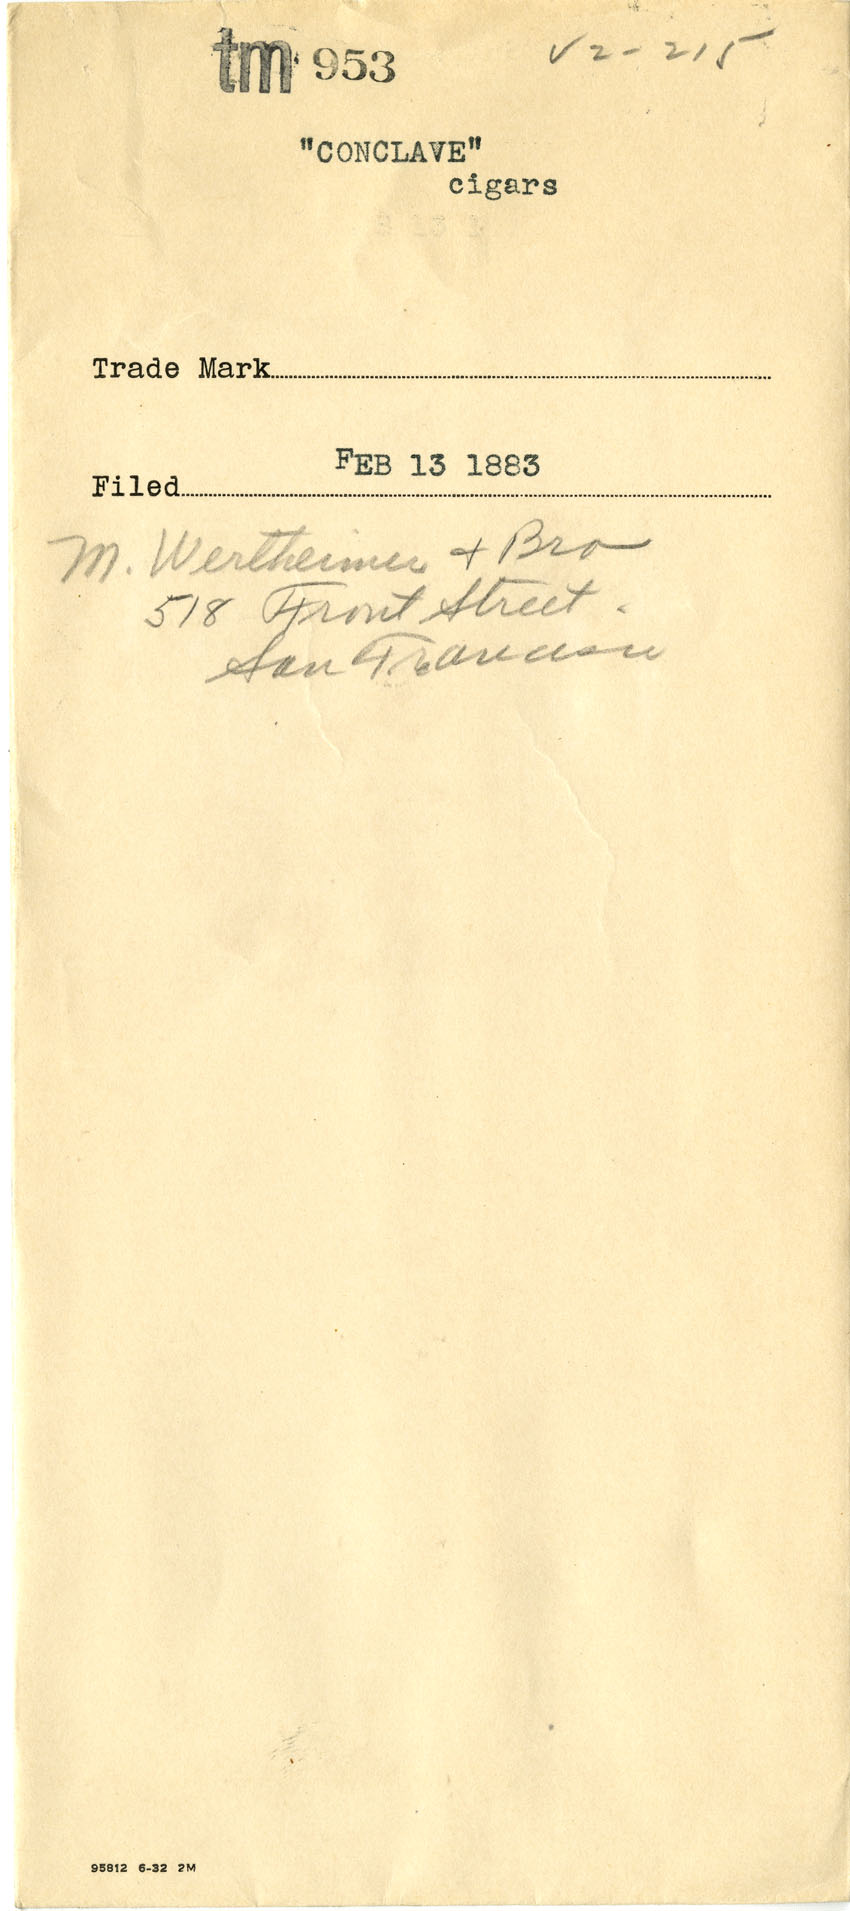 tm 953
V2-215
"CONCLAVE"
cigars
Trade Mark
FEB 13 1883
Filed
M. Wertheimer + Bro
518 Front Street.
San Francisco
95812 6-32 2M